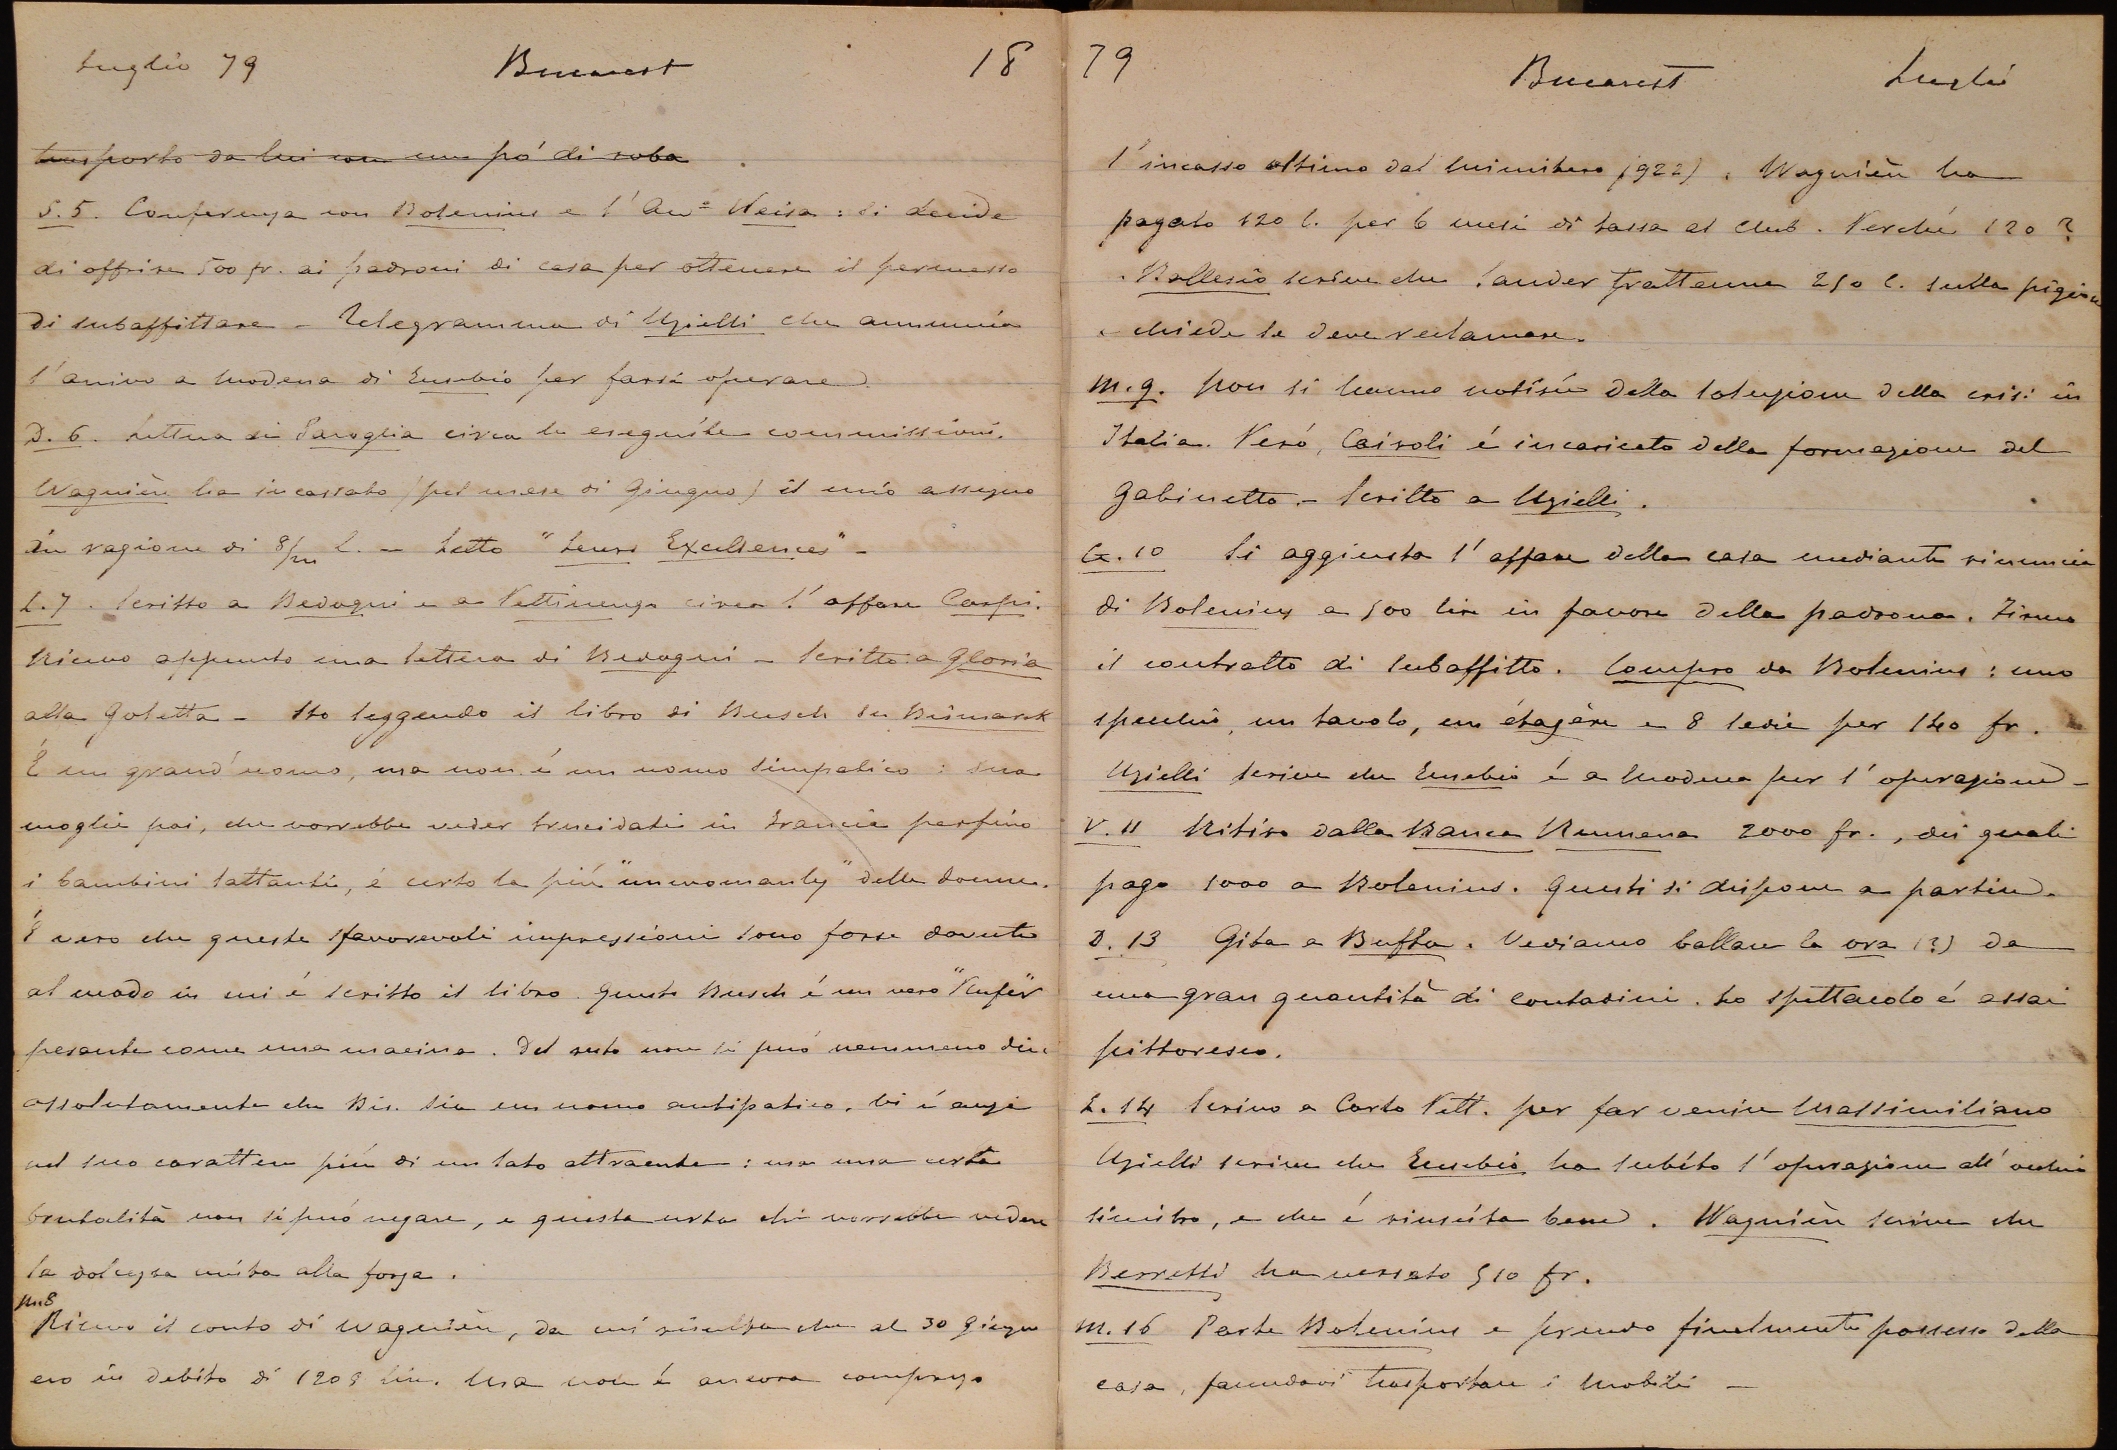 Luglio 79 Bucarest 18
trasporto da lui con un pó di roba
S. 5. Conferenza con Bolenius e l'Avv.º Weisa: si decide
di offrire 500 fr. ai padroni di casa per ottenere il permesso
di subaffittare - Telegramma di Uzielli che annunzia
l'arrivo a Modena di Eusebio per farsi operare.
D. 6. Lettera di Paroglia circa le eseguite commissioni.
Wagnièr ha incassato (pel mese di Giugno) il mio assegno
in ragione di 8/m l. - Letto "Leurs Excellences" -
L. 7. Scritto a Bedogni e a Pettinengo circa l'affare Carpi.
Ricevo appunto una lettera di Bedogni - Scritto a Gloria
alla Goletta - Sto leggendo il libro di Busch su Bismarck
É un grand'uomo, ma non é un uomo simpatico: sua
moglie poi, che vorrebbe veder trucidati in Francia perfino
i bambini lattanti, é certo la più "unwomanly" delle donne.
É vero che queste sfavorevoli impressioni sono forse dovute
al modo in cui é scritto il libro. Questo Busch é un vero
pesante come una macina. Del resto non si può nemmeno dire
assolutamente che Bis. sia un uomo antipatico. Vi é anzi
nel suo carattere più di un lato attraente: ma una certa
brutalità non si può negare, e questa urta chi vorrebbe vedere
la dolcezza unita alla forza.
M. 8
Ricevo il conto di Wagnièr, da cui risulta che al 30 Giugno
ero in debito di 1209 lire. Ma non é ancora compreso
79 Bucarest Luglio
l'incasso ultimo dal Ministero (922). Wagnièr ha
pagato 120 l. per 6 mesi di tassa al Club. Perché 120?
Ballesio scrive che Lauder trattenne 250 l. sulla pigione
e chiede se deve reclamare.
M. 9. Non si hanno notizie della soluzione della crisi in
Italia. Però, Cairoli é incaricato della formazione del
Gabinetto. - Scritto a Uzielli.
G. 10 Si aggiusta l'affare della casa mediante rinuncia
di Bolenius a 500 lire in favore della padrona. Firmo
il contratto di subaffitto. Compro da Bolenius: uno
specchio, un tavolo, un étagère e 8 sedie per 140 fr.
Uzielli scrive che Eusebio é a Modena per l'operazione -
V. 11 Ritiro dalla Banca Rumena 2000 fr., dei quali
pago 1000 a Bolenius. Questi si dispone a partire.
D. 13 Gita a Buftea. Vediamo ballare la ora (?) da
una gran quantità di contadini. Lo spettacolo é assai
pittoresco.
L. 14 Scrivo a Carlo Pett. per far venire Massimiliano
Uzielli scrive che Eusebio ha subìto l'operazione all'occhio
sinistro, e che é riuscita bene. Wagnièr scrive che
Berretti ha versato 510 fr.
M. 16 Parte Bolenius e prendo finalmente possesso della
casa, facendovi trasportare i mobili -